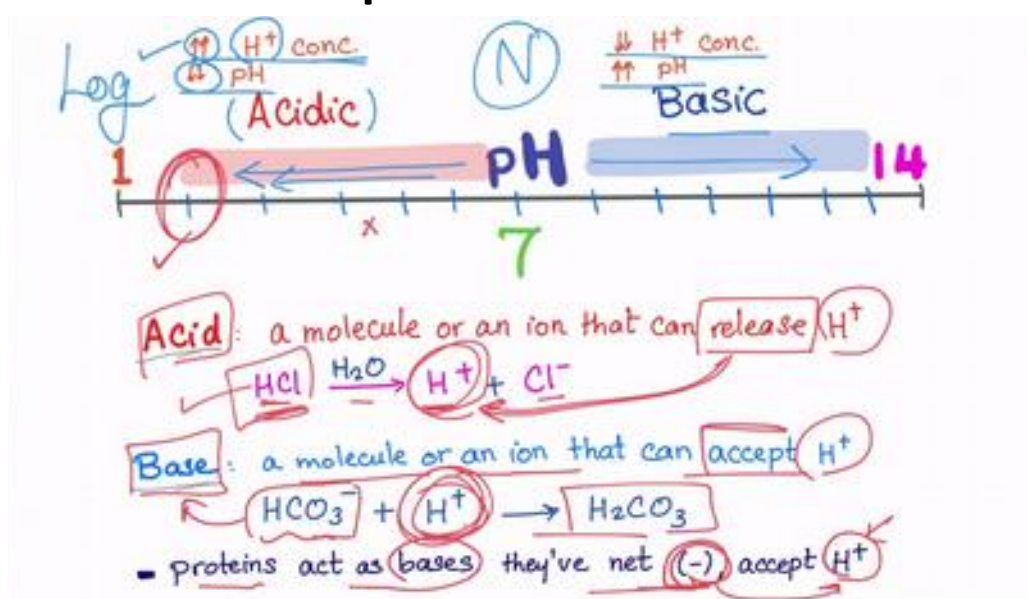 Log ↑↑ H⁺ conc.
↓↓ pH
(Acidic)
N
↓↓ H⁺ conc.
↑↑ pH
Basic
1 pH 14
x
7
Acid: a molecule or an ion that can release H⁺
HCl H₂O → H⁺ + Cl⁻
Base: a molecule or an ion that can accept H⁺
HCO₃⁻ + H⁺ → H₂CO₃
- proteins act as bases they've net (-), accept H⁺